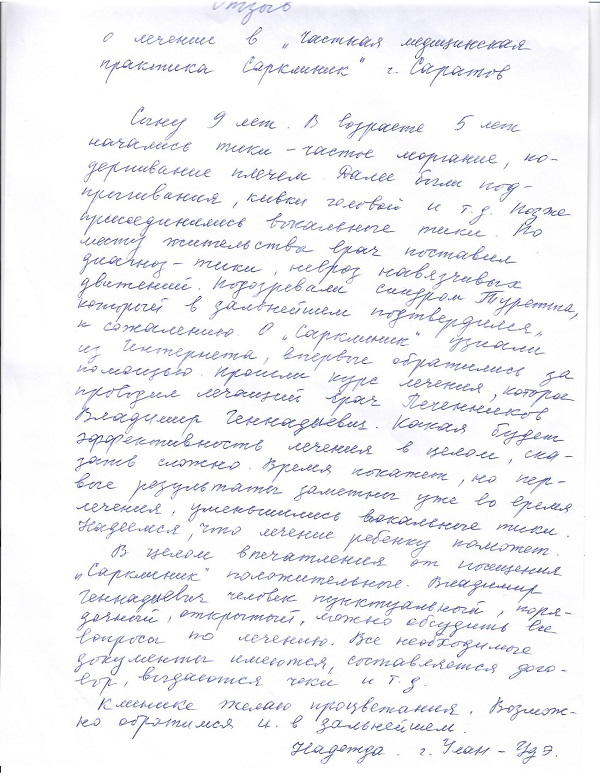 Отзыв
о лечение в „Частная медицинская
практика Саркклиник" г. Саратов
Сыну 9 лет. В возрасте 5 лет
начались тики – частое моргание, по-
дергивание плечем. Далее были под-
прыгивания, кивки головой и т.д. Позже
присоединились вокальные тики. По
месту жительства врач поставил
диагноз – тики, невроз навязчивых
движений. Подозревали синдром Туретта,
который в дальнейшем подтвердился,
к сожалению. О „Саркклиник" узнали
из Интернета, впервые обратились за
помощью. Прошли курс лечения, которое
проводил лечащий врач Печенников
Владимир Геннадьевич. Какая будет
эффективность лечения в целом, ска-
зать сложно. Время покажет, но пер-
вые результаты заметны уже во время
лечения, уменьшились вокальные тики.
Надеемся, что лечение ребенку поможет.
В целом впечатления от посещения
„Саркклиник" положительные. Владимир
Геннадьевич человек пунктуальный, поря-
дочный, открытый, можно обсудить все
вопросы по лечению. Все необходимые
документы имеются, составляется дого-
вор, выдаются чеки и т.д.
Клинике желаю процветания. Возмож-
но обратимся и в дальнейшем.
Надежда. г. Улан-Удэ.